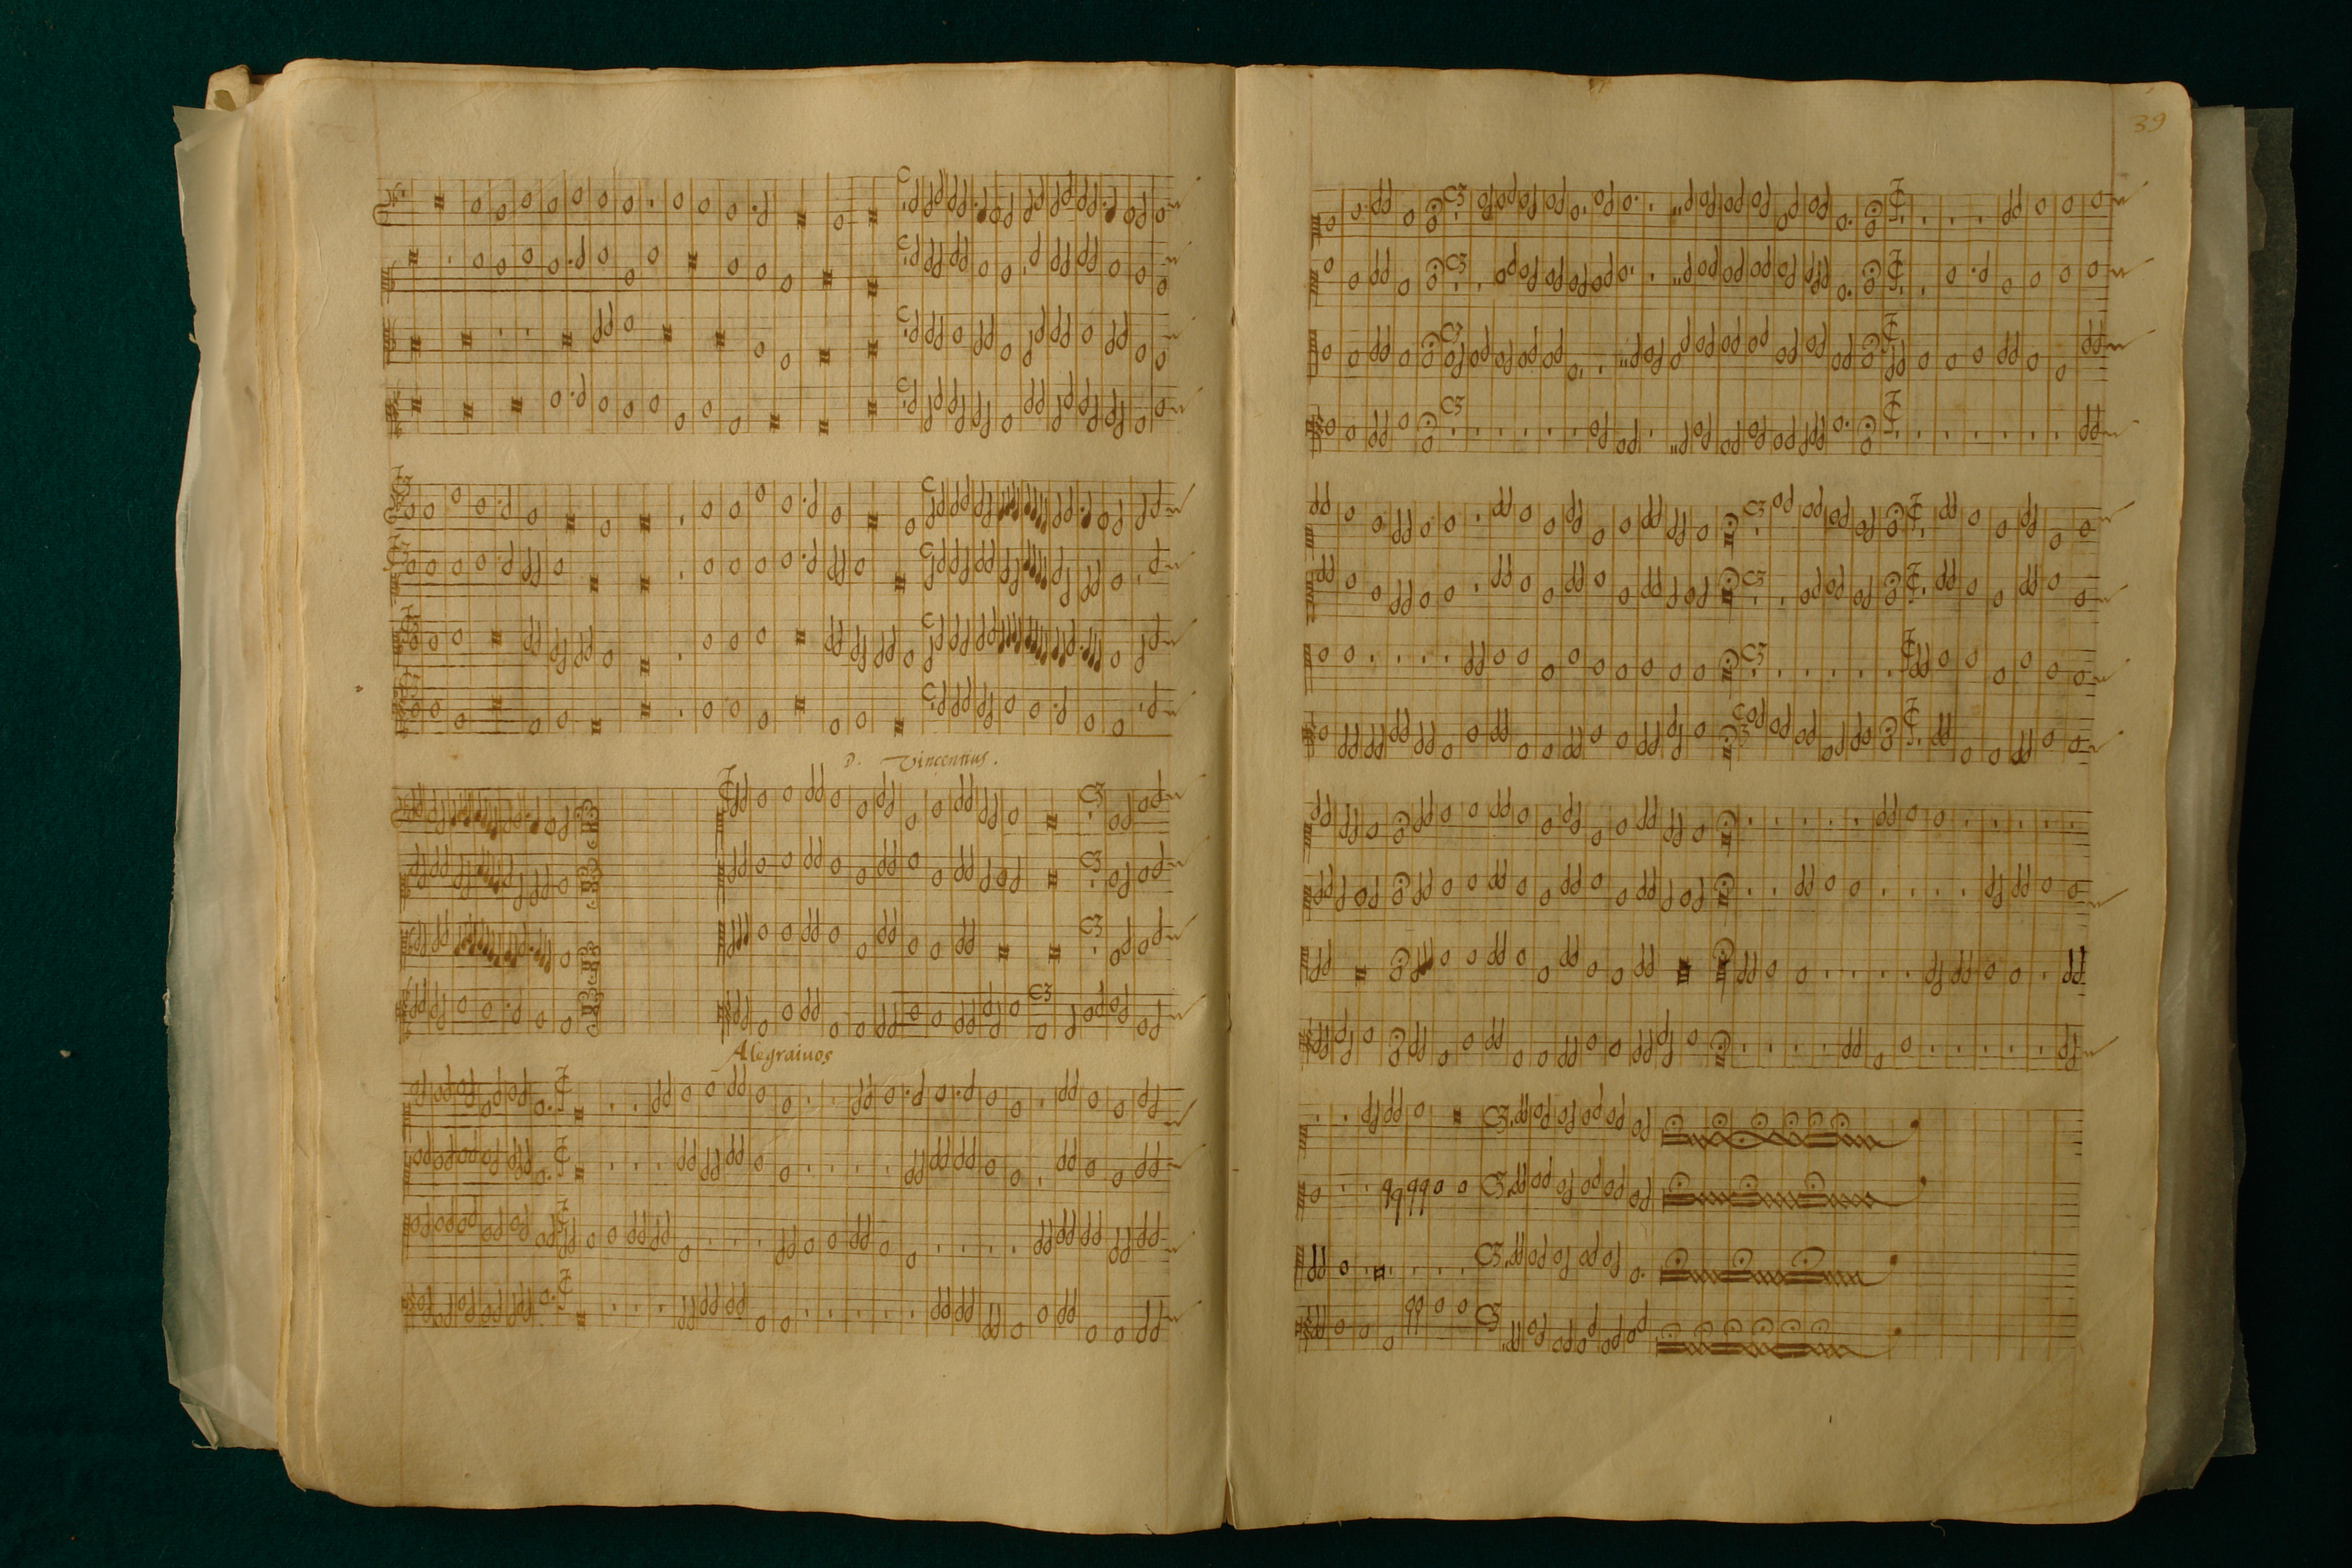 D. Vincentius.
Alegraivos
39